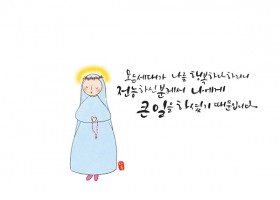 모든 세대가 나를 행복하다 하리니
전능하신 분께서 나에게
큰 일을 하셨기 때문입니다